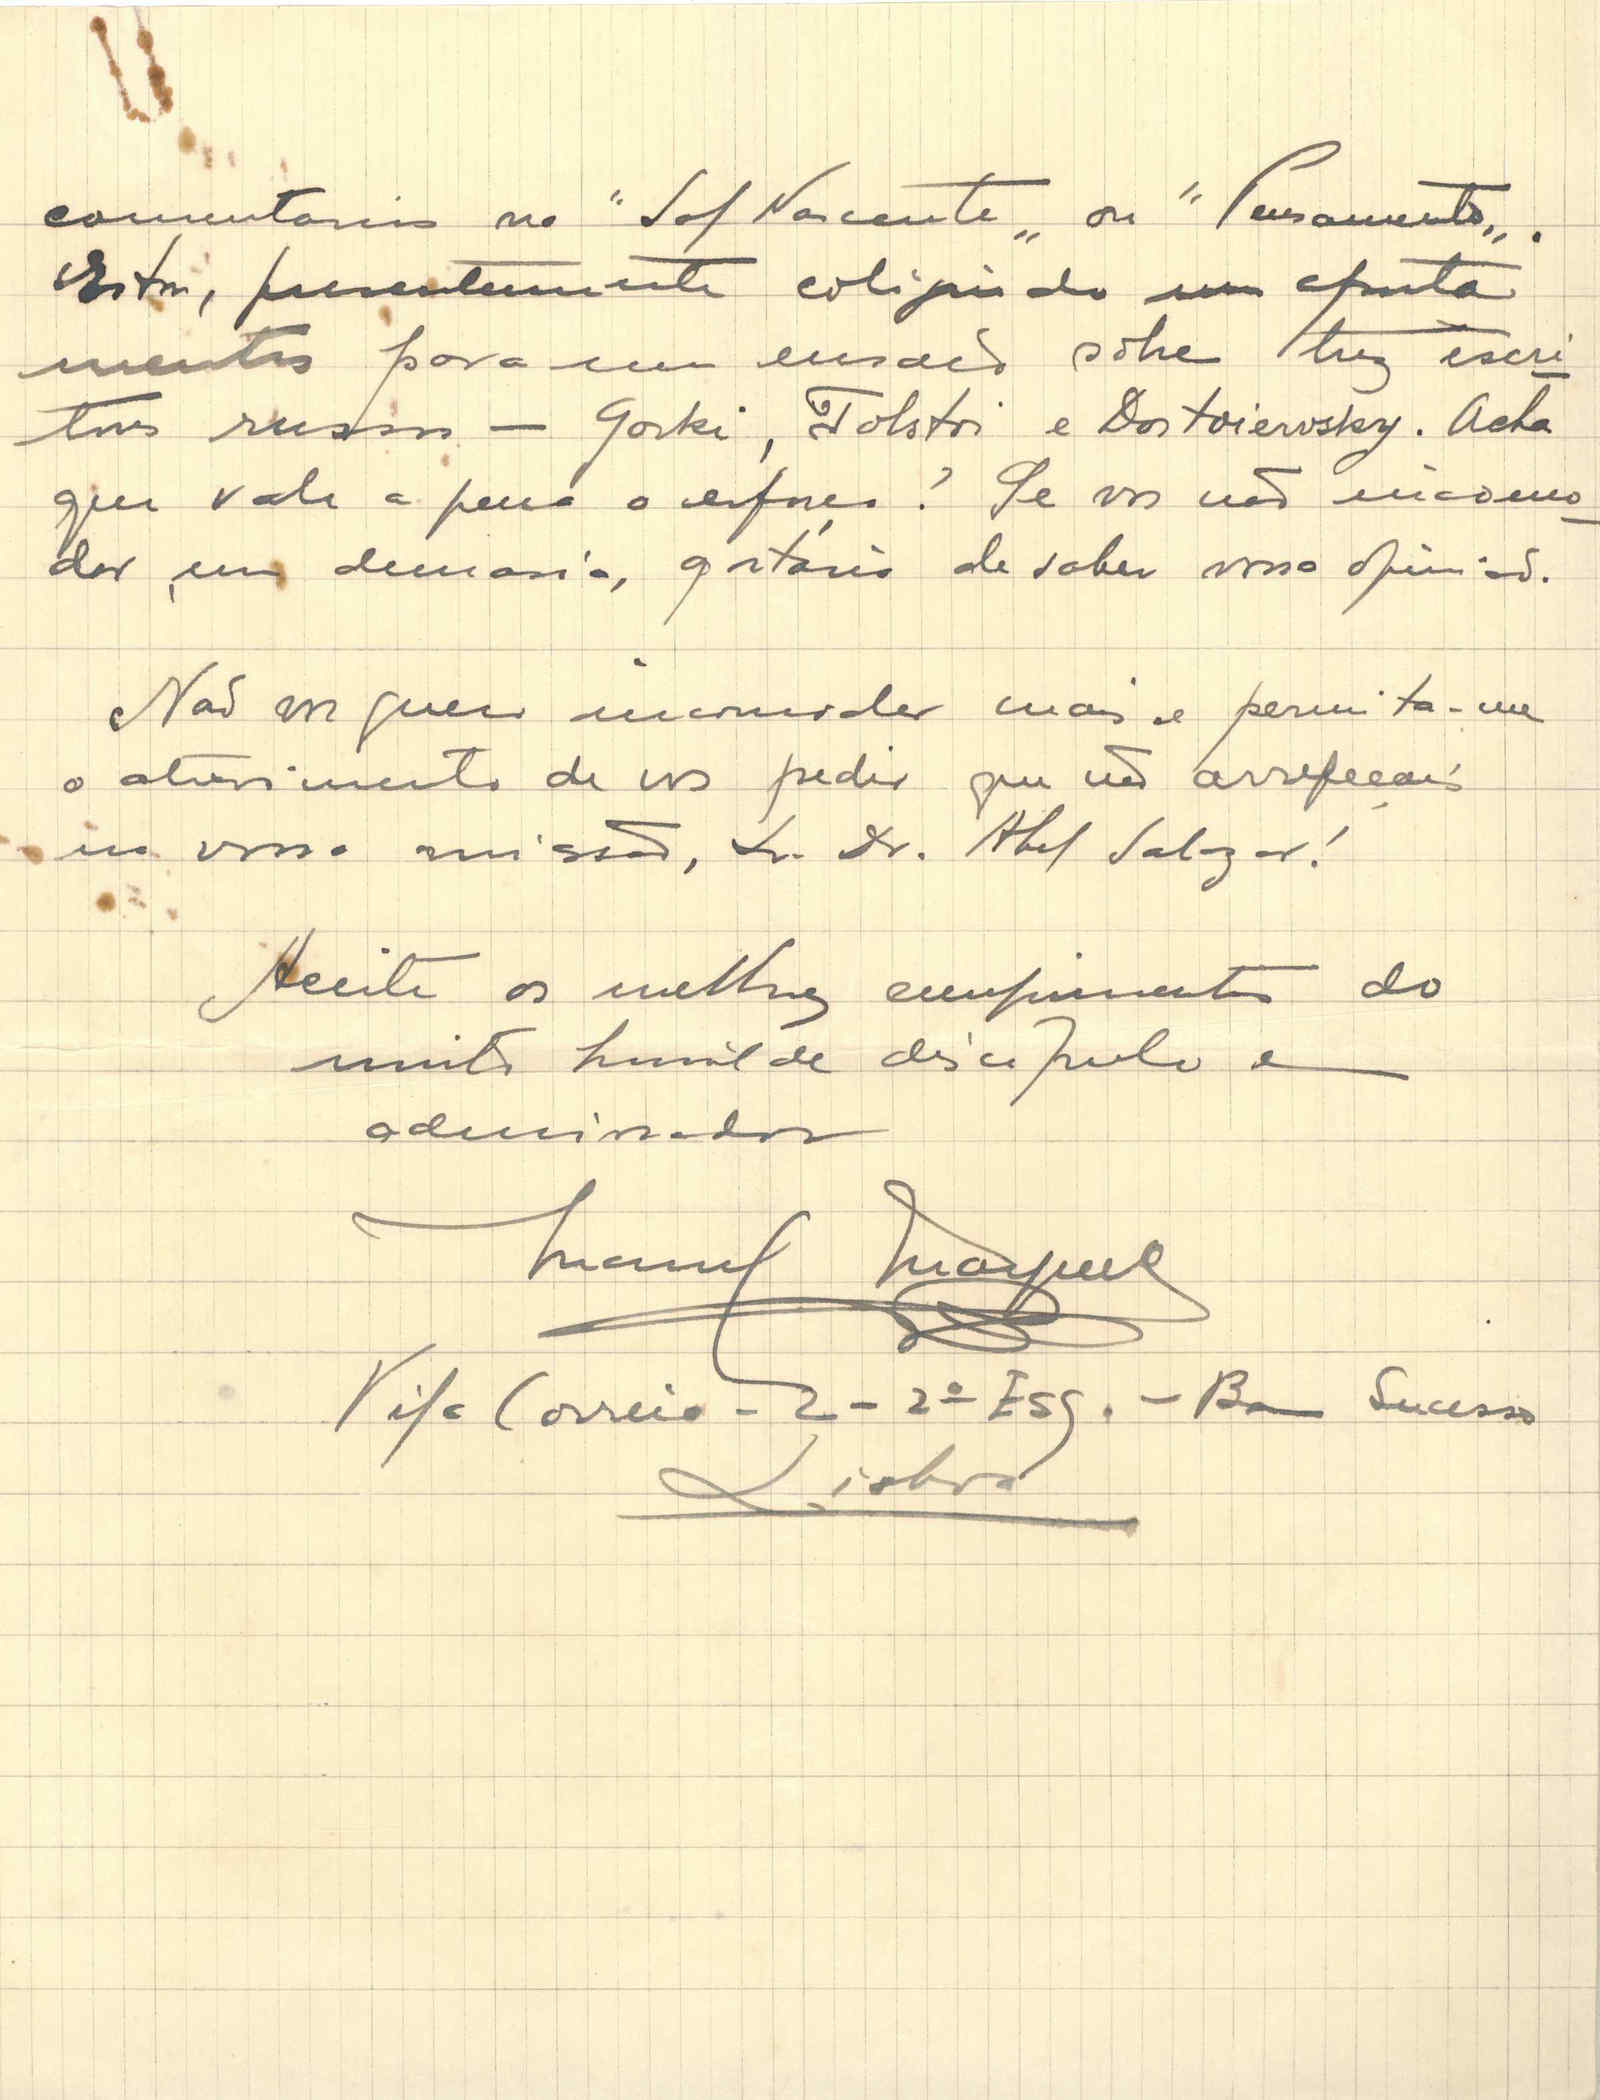 comentarios no "Sol Nascente„ ou "Pensamento„.
Estou, presentemente coligindo uns aponta
mentos para um ensaio sôbre trez escri
tores russos — Gorki, Tolstoi e Dostoierosky. Acha
que vale a pena o esforço? Se vos não incomo_
dar, em demasia, gostaria de saber vossa opinião.
Não vos quero incomodar mais e permita-me
o atrevimento de vos pedir que não arrefeçais
na vossa missão, Sr. Dr. Abel Salazar!
Aceite os melhores cumprimentos do
muito humilde discipulo e
admirador
Manuel Marques
Vila Correia - 2 - 2º Esq. - Bom Sucesso
Lisboa